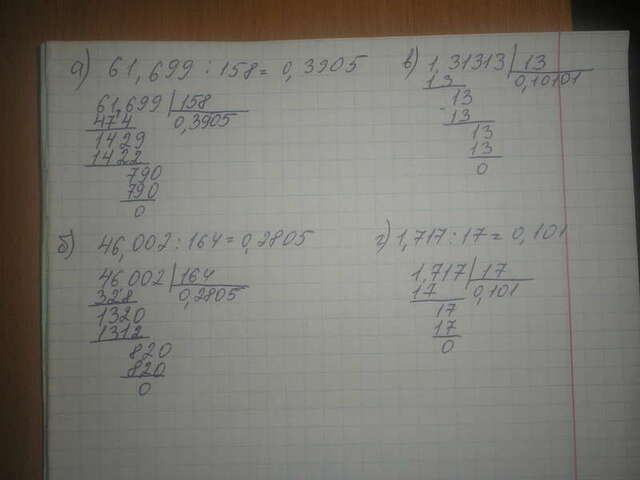 а) 61,699 : 158 = 0,3905
61,699 | 158
474 0,3905
1429
1422
790
790
0
б) 46,002 : 164 = 0,2805
46,002 | 164
328 0,2805
1320
1312
820
820
0
в) 1,31313 | 13
13 0,10101
13
13
13
13
0
г) 1,717 : 17 = 0,101
1,717 | 17
17 0,101
17
17
0